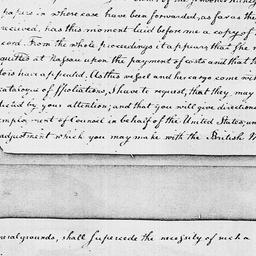 papers in whose case have been forwarded, as far as the
received, has this moment laid before me a copy of
cord. From the whole proceedings it appears that she
quitted at Nassau upon the payment of costs and that
lors have appealed. As this vessel and her cargo come wi
catalogue of Spoliations, I have to request, that they may
dicted by you attention; and that you will give direction
employment of Counsel in behalf of the United States, un
adjustment which you may make with the British
neral grounds, shall supercede the necessity of such a